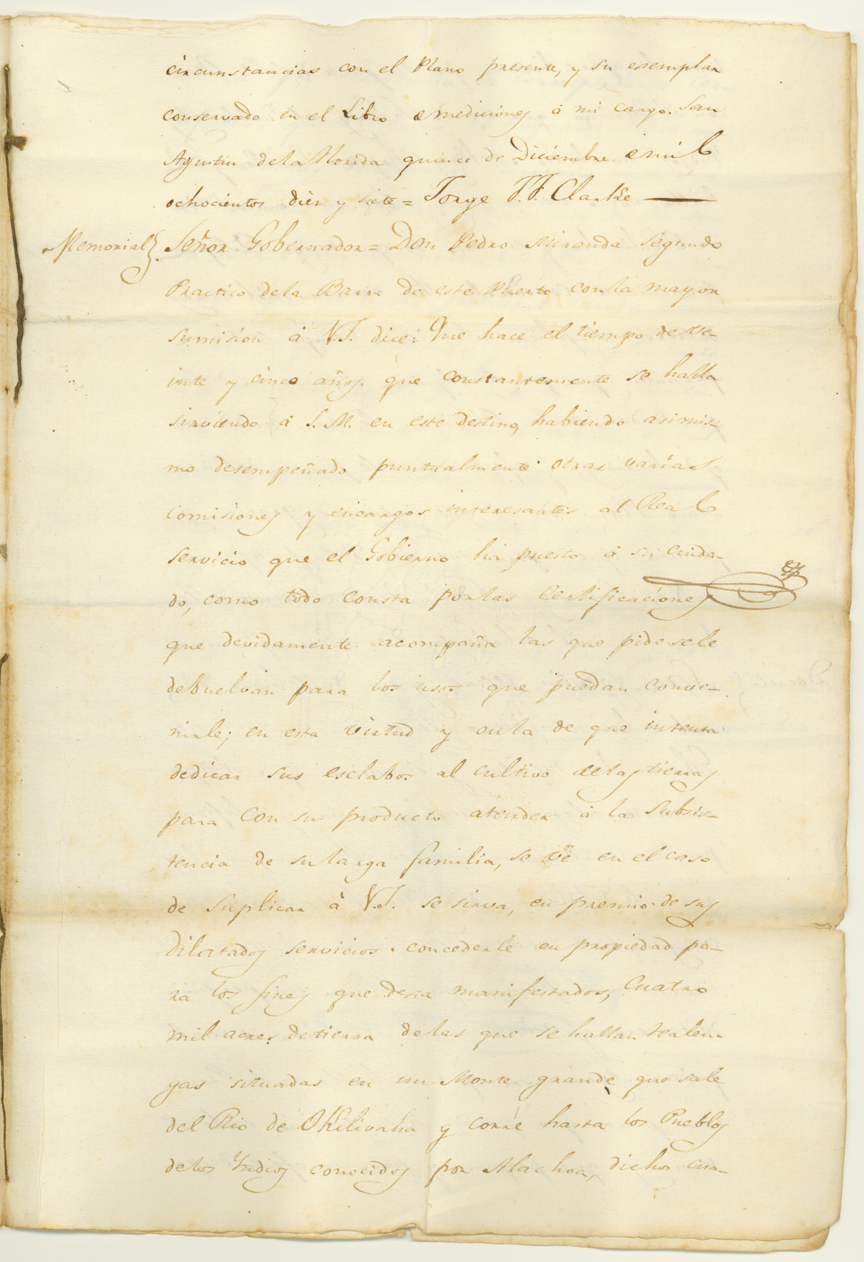 circunstancias con el Plano presente, y su exemplar
conservado en el Libro de mediciones á mi cargo. San
Agustin dela Florida quince de Diciembre de mil
ochocientos diez y siete = Jorge J. F. Clarke —
Memorial. Señor Gobernador = Don Pedro Miranda segundo
Practico dela Barra de este Puerto con la mayor
sumision á V.S. dice: Que hace el tiempo de ve-
inte y cinco años que constantemente se halla
sirviendo á S.M. en este destino, habiendo asimis-
mo desempeñado puntualmente otras varias
comisiones y encargos interesantes al Real
servicio que el Gobierno ha puesto á su cuida-
do, como todo consta por las Certificaciones
que devidamente acompaña las que pide sele
debuelvan para los usos que puedan conve-
nirle; en esta virtud y en la de que intenta
dedicar sus esclabos al cultivo delas tierras
para con su producto atender á la Subsis-
tencia de su larga familia, se vé en el caso
de suplicar á V.S. se sirva, en premio de sus
dilatados servicios concederle en propiedad pa-
ra los fines que deja manifestados, Cuatro
mil acres de tierra delas que se hallan realen-
gas situadas en un Monte grande que sale
del Rio de Okliwaha y corre hasta los Pueblos
delos Yndios conocidos por Alachua, dichos cua-